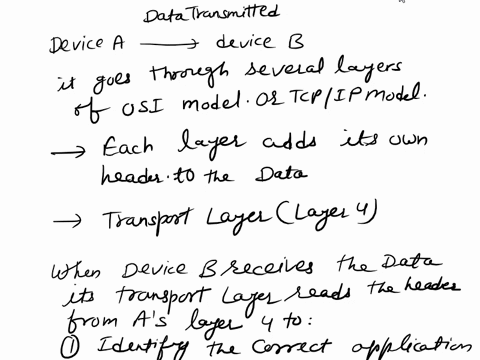 Data Transmitted
Device A ⟶ device B
it goes through several layers
of OSI model. or TCP/IP model.
→ Each layer adds its own
header. to the Data
→ Transport Layer (Layer 4)
When Device B receives the Data
its transport Layer reads the header
from A's layer 4 to:
① Identify the correct application